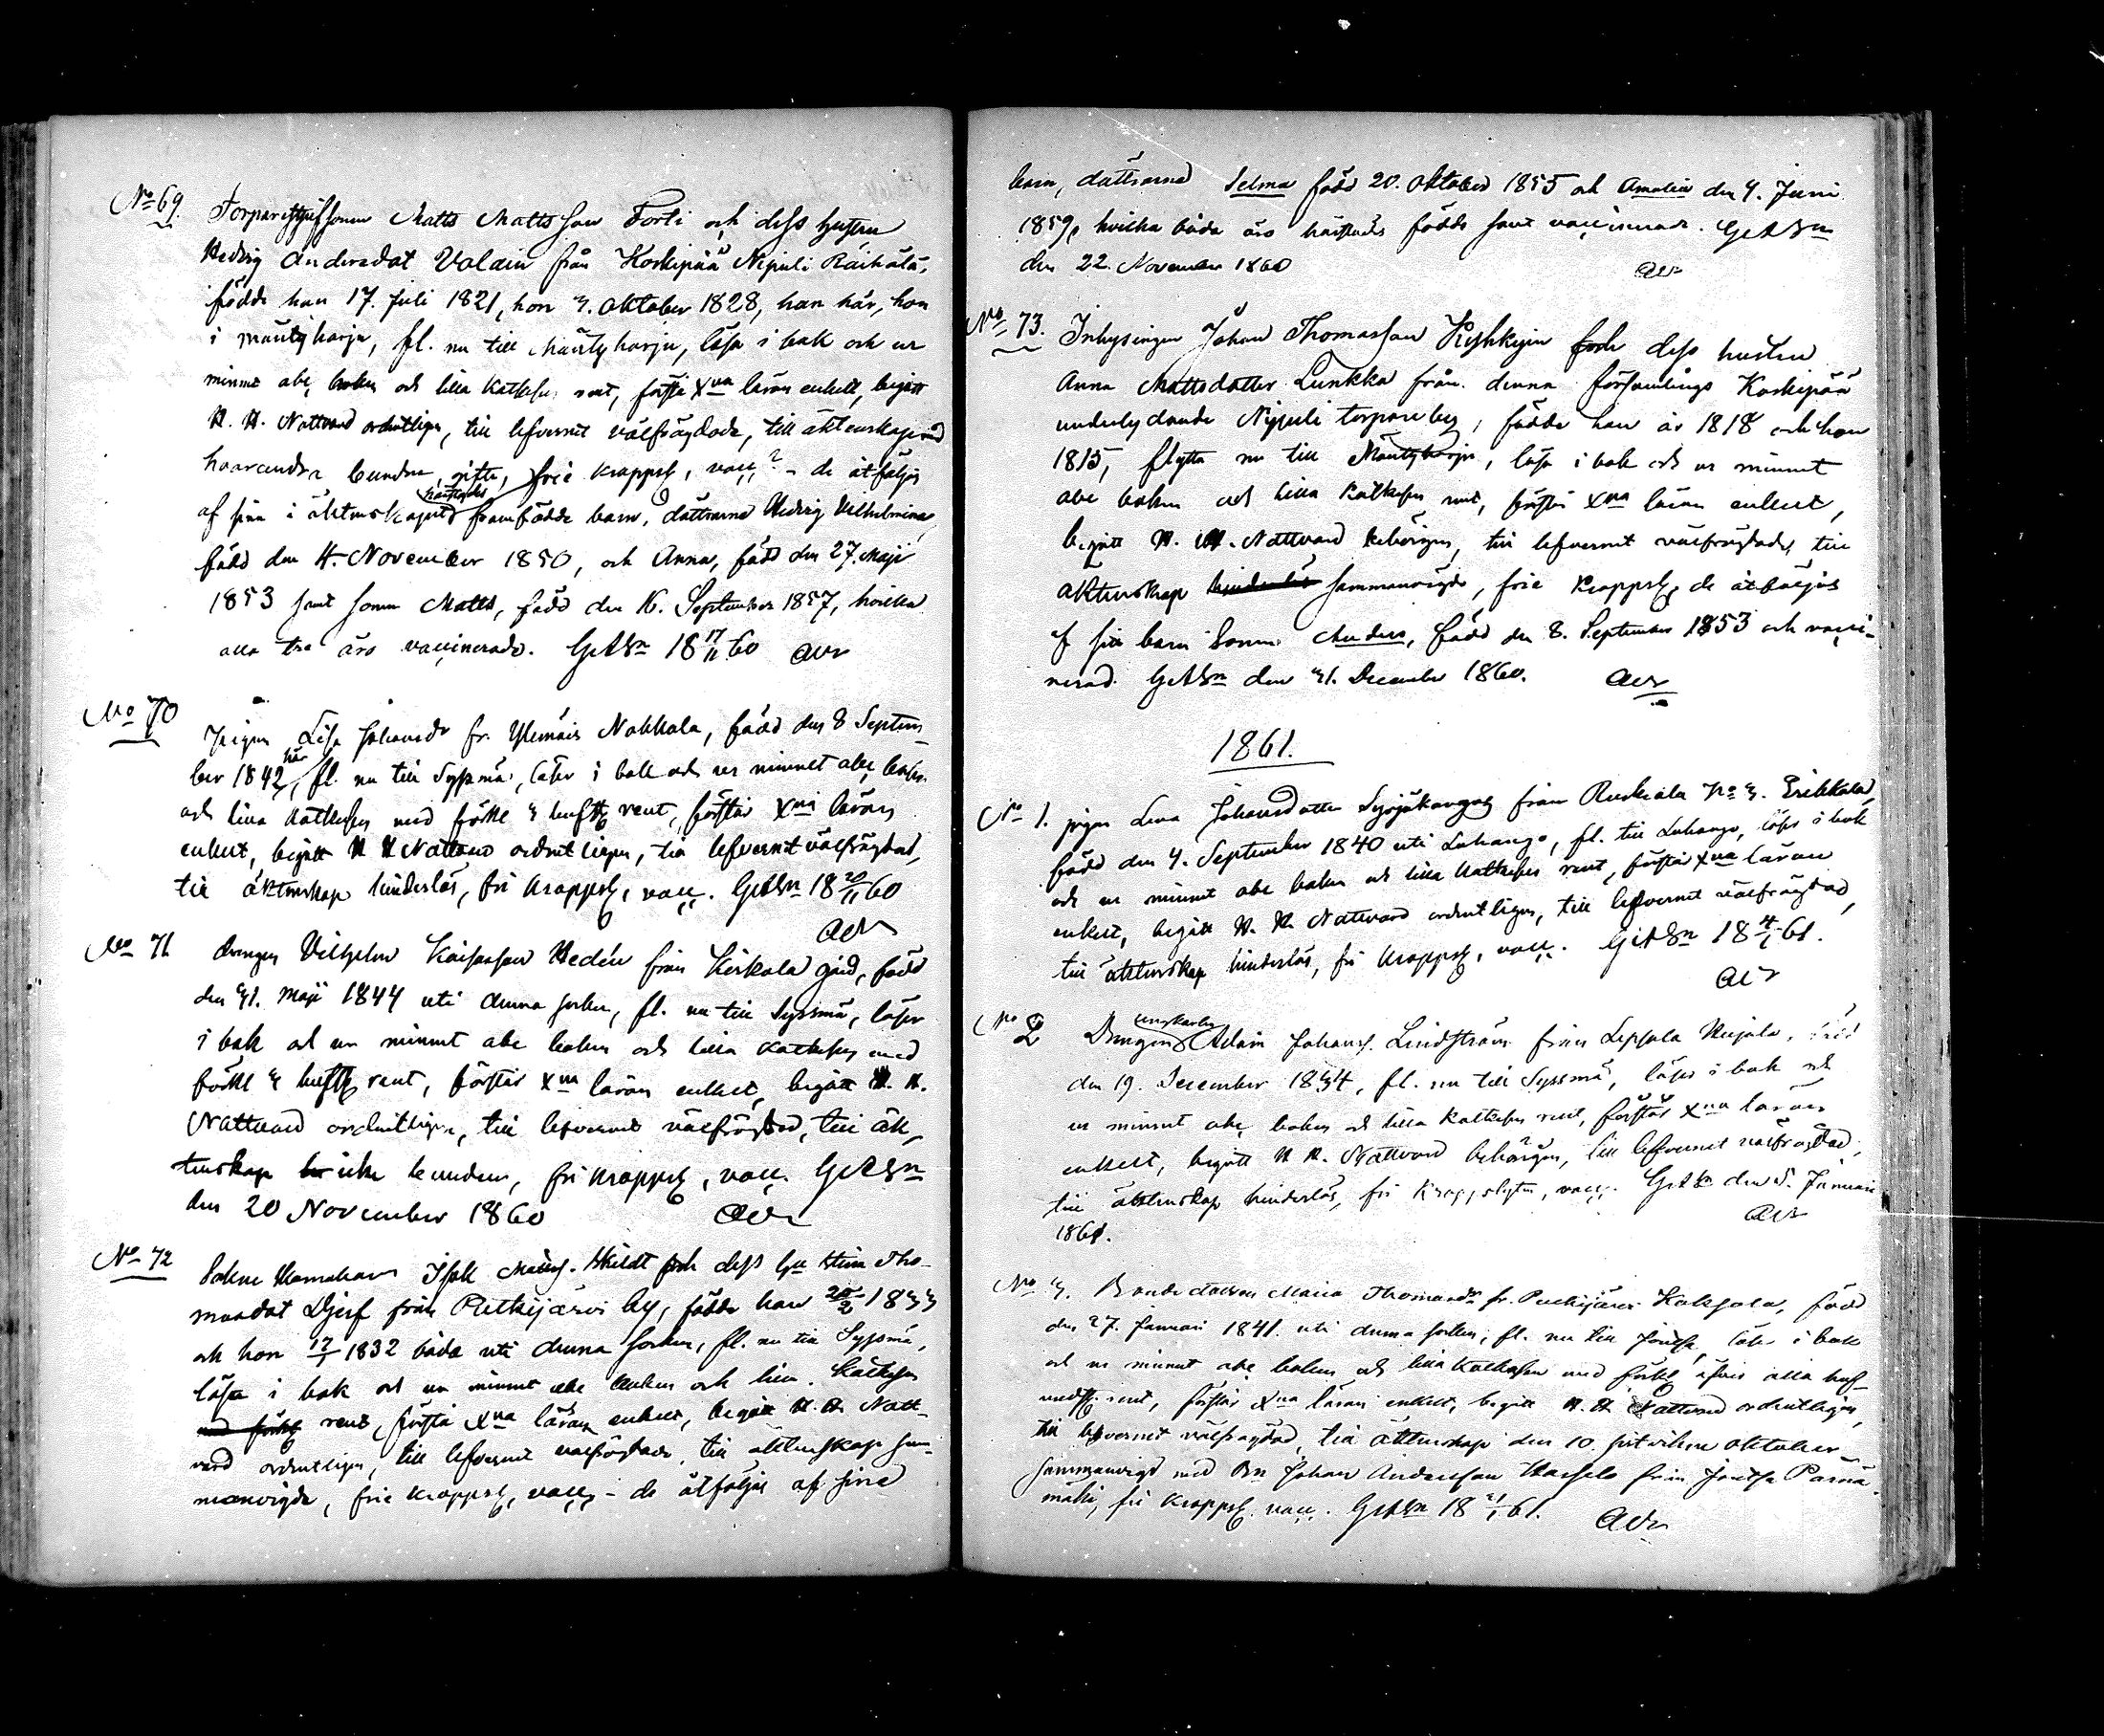 No 69. Torparehyresonen Matts Mattsson Torti och dess hustru
Hedvig Andersdot Valain från Koskipää Nipuli Räihälä,
födde han 17. Juli 1821, hon 3. Oktober 1828, han här, hon
i Mäntyharju, fl. nu till Mäntyharju, läsa i bok och ur
minnet abc, boken och lilla Katkesen rent, förstå Xna läran enkelt, begått
H. H. Nattvard ordentligen, till lefvernet välfrägdade, till äktenskap med
hvarandra bundna, gifte, frie krappsl, vacc? - de åtföljas
af sina i äktenskapet härstädes framfödde barn, döttrarna Hedvig Vilhelmina,
född den 4. November 1850, och Anna, född den 27. Maji
1853 samt sonen Matts, född den 16. September 1857, hvilka
alla tre äro vaccinerade. GetAsn 18 17/11 60 AW
No 70
Pigan Lisa Johansdr fr. Ylemäis Nokkala, född den 8 Septem-
ber 1842 här, fl. nu till Syssmä, läser i bok och ur minnet abc, boken
och lilla Katkesen med förkl & hustfl rent, förstår Xna läran
enkelt, begått H H Nattvard ordentligen, till lefvernet välfrägdad,
till äktenskap hinderslös, fri krappsl, vacc. GetAsn 18 20/11 60
AW
No 71 Drengen Vilhelm Kaisasson Hedén från Kirkola gård, född
den 31. Maji 1844 uti denna socken, fl. nu till Syssmä, läser
i bok och ur minnet abc boken och lilla Katkesen med
förkl & hustfl rent, förstår Xna läran enkelt, begått H. H.
Nattvard ordentligen, till lefvernet välfrägdad, till äk-
tenskap icke bunden, fri krappsl, vacc. GetAsn
den 20 November 1860 AW
No 72 Isak Skildt och dess hustru Tho-
masdot Djerf från Putkijärvi by, födde han 25/2 1833
och hon 12/1 1832 båda uti denna socken, fl. nu till Syssmä,
läsa i bok och ur minnet abc boken och lilla Katkesen
med förkl rent, förstå Xna läran enkelt, begått H. H. Natt-
vard ordentligen, till lefvernet välfrägdade, till äktenskap sam-
manvigde, frie krappsl, vacc, - de åtföljas af sine
barn, döttrarna Selma född 20. Oktober 1855 och Amalia den 4. Juni
1859, hvilka båda äro härstädes födde samt vaccinerade. GetAsn
den 22. November 1860 AW
No 73. Inhysingen Johan Thomasson Koskinen och dess hustru
Anna Mattsdotter Lunkka från denna församlings Koskipää
underlydande Nipuli torpareby, födde han år 1818 och hon
1815, flytta nu till Mäntyharju, läsa i bok och ur minnet
abc boken och lilla Katkesen rent, förstå Xna läran enkelt,
begått H. H. Nattvard behörigen, till lefvernet välfrägdade, till
äktenskap sammanvigde, frie krappsl, de åtföljas
af sin barn Sonen Anders, född den 8. September 1853 och vacci-
nerad. GetAsn den 31. December 1860. AW
1861.
No 1. pigan Lena Johansdotter från Ruskiala No 3. Erikkala,
född den 4. September 1840 uti Luhango, fl. till Luhango, läser i bok
och ur minnet abc boken och lilla Katkesen rent, förstår Xna läran
enkelt, begått H. H. Nattvard ordentligen, till lefvernet välfrägdad,
till äktenskap hinderslös, fri krappsl, vacc. GetAsn 18 4/1 61.
AW
No 2 Drengen ungkarlen Adam Johanss. Lindström från Lepsala Kujala, född
den 19. December 1834, fl. nu till Syssmä, läser i bok och
ur minnet abc boken och lilla Katkesen rent, förstår Xna läran
enkelt, begått H H. Nattvard behörigen, till lefvernet välfrägdad,
till äktenskap hinderslös, fri Krappslyten, vacc. GetAsn den 5. Januari
1861. AW
No 3. Bondedottren Maria Thomasdr fr. Putkijärvi Kokzola, född
den 27. Januari 1841. uti denna socken, fl. nu till Joutsa, läser i bok
och ur minnet abc boken och lilla Katkesen med förkl,
rent, förstår Xna läran enkelt, begått H. H. Nattvard ordentligen,
till lefvernet välfrägdad, till äktenskap den 10. sistvikne Oktober
sammanvigd med Bn Johan Andersson från Joutsa Parna-
mäki, fri krappsl, vacc. GetAsn 18 21/1 61. AW